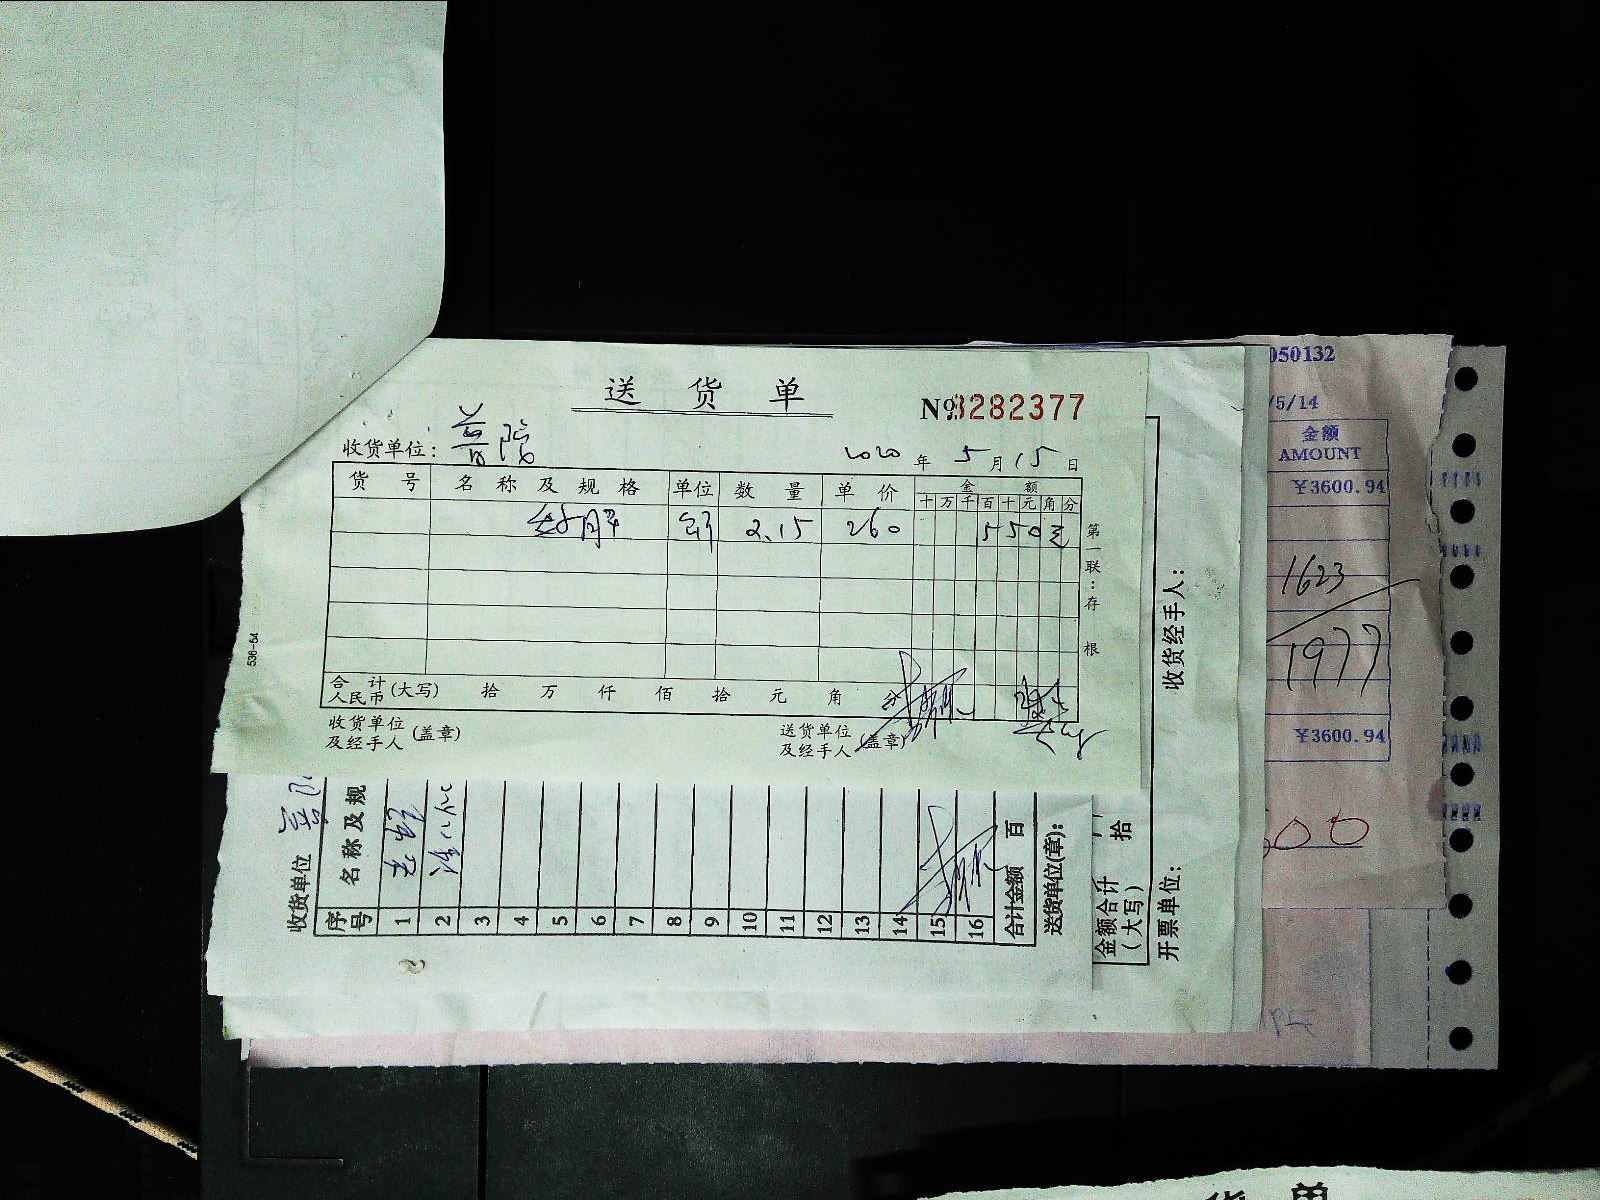 送 货 单
№3282377
收货单位：
2020 年 5 月 15 日
货 号 名 称 及 规 格 单位 数 量 单 价 金 额
十 万 千 百 十 元 角 分
2.15 260 550元
第一联：存根
合 计
人民币 (大写) 拾 万 仟 佰 拾 元 角 分
收货单位
及经手人 (盖章)
送货单位
及经手人 (盖章)
536-54
收货单位
序号 名称及规
1
2
3
4
5
6
7
8
9
10
11
12
13
14
15
16
合计金额 百
送货单位(章)：
金额合计
(大写) 拾
开票单位：
收货经手人：
050132
/5/14
金额
AMOUNT
￥3600.94
1623
1977
￥3600.94
货 单